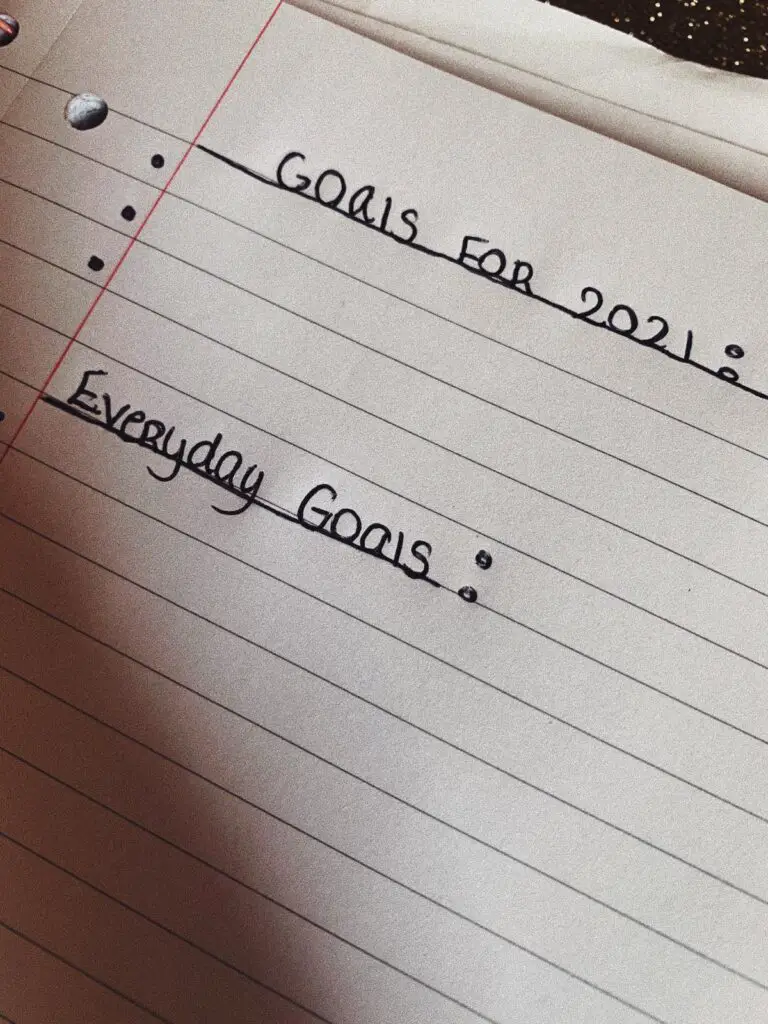 GOalS FOR 2021:
•
•
•
EveRyday GOalS: